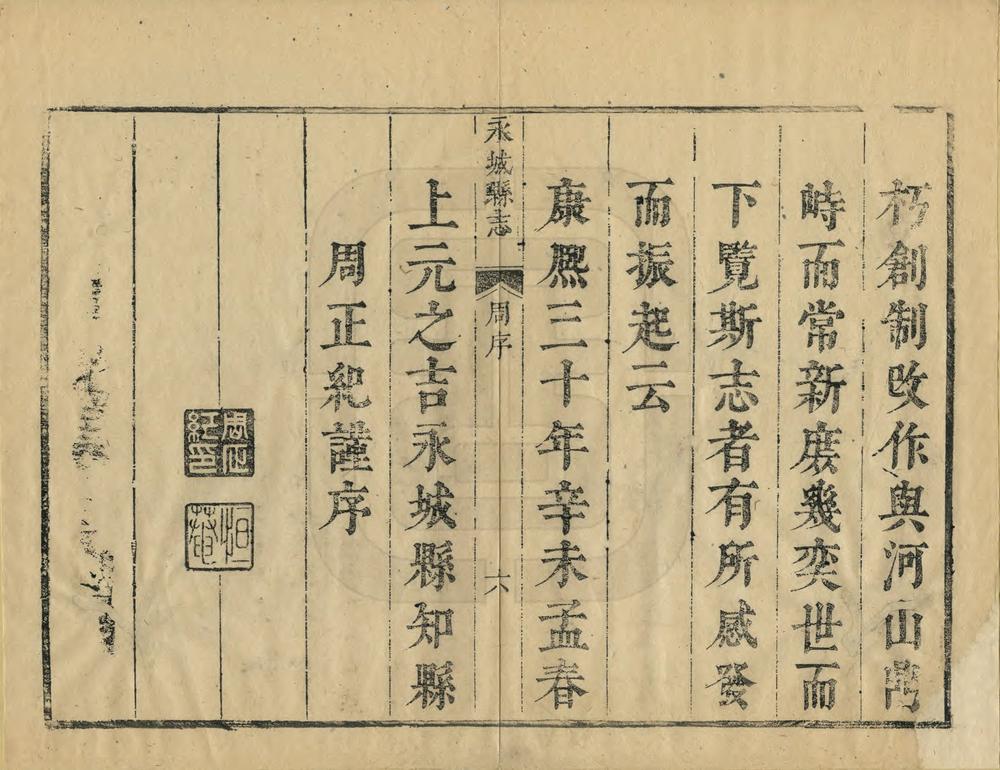 朽創制改作與河山
峙而常新庻㡬奕世而
下覽斯志者有所感發
而振起云
康熈三十年辛未孟春
永城縣志
周序
六
上元之吉永城縣知縣
周正紀謹序
周正紀印